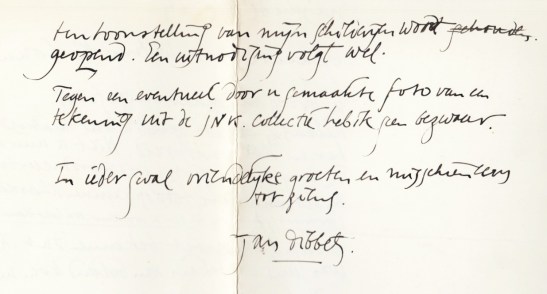 tentoonstelling van mijn schilderijen wordt gehouden.
geopend. Een uitnodiging volgt wel.
Tegen een eventueel door u gemaakte foto van een
tekening uit de JNK. collectie heb ik geen bezwaar.
In ieder geval vriendelijke groeten en misschien eens
tot ziens.
Jan Dibbets.